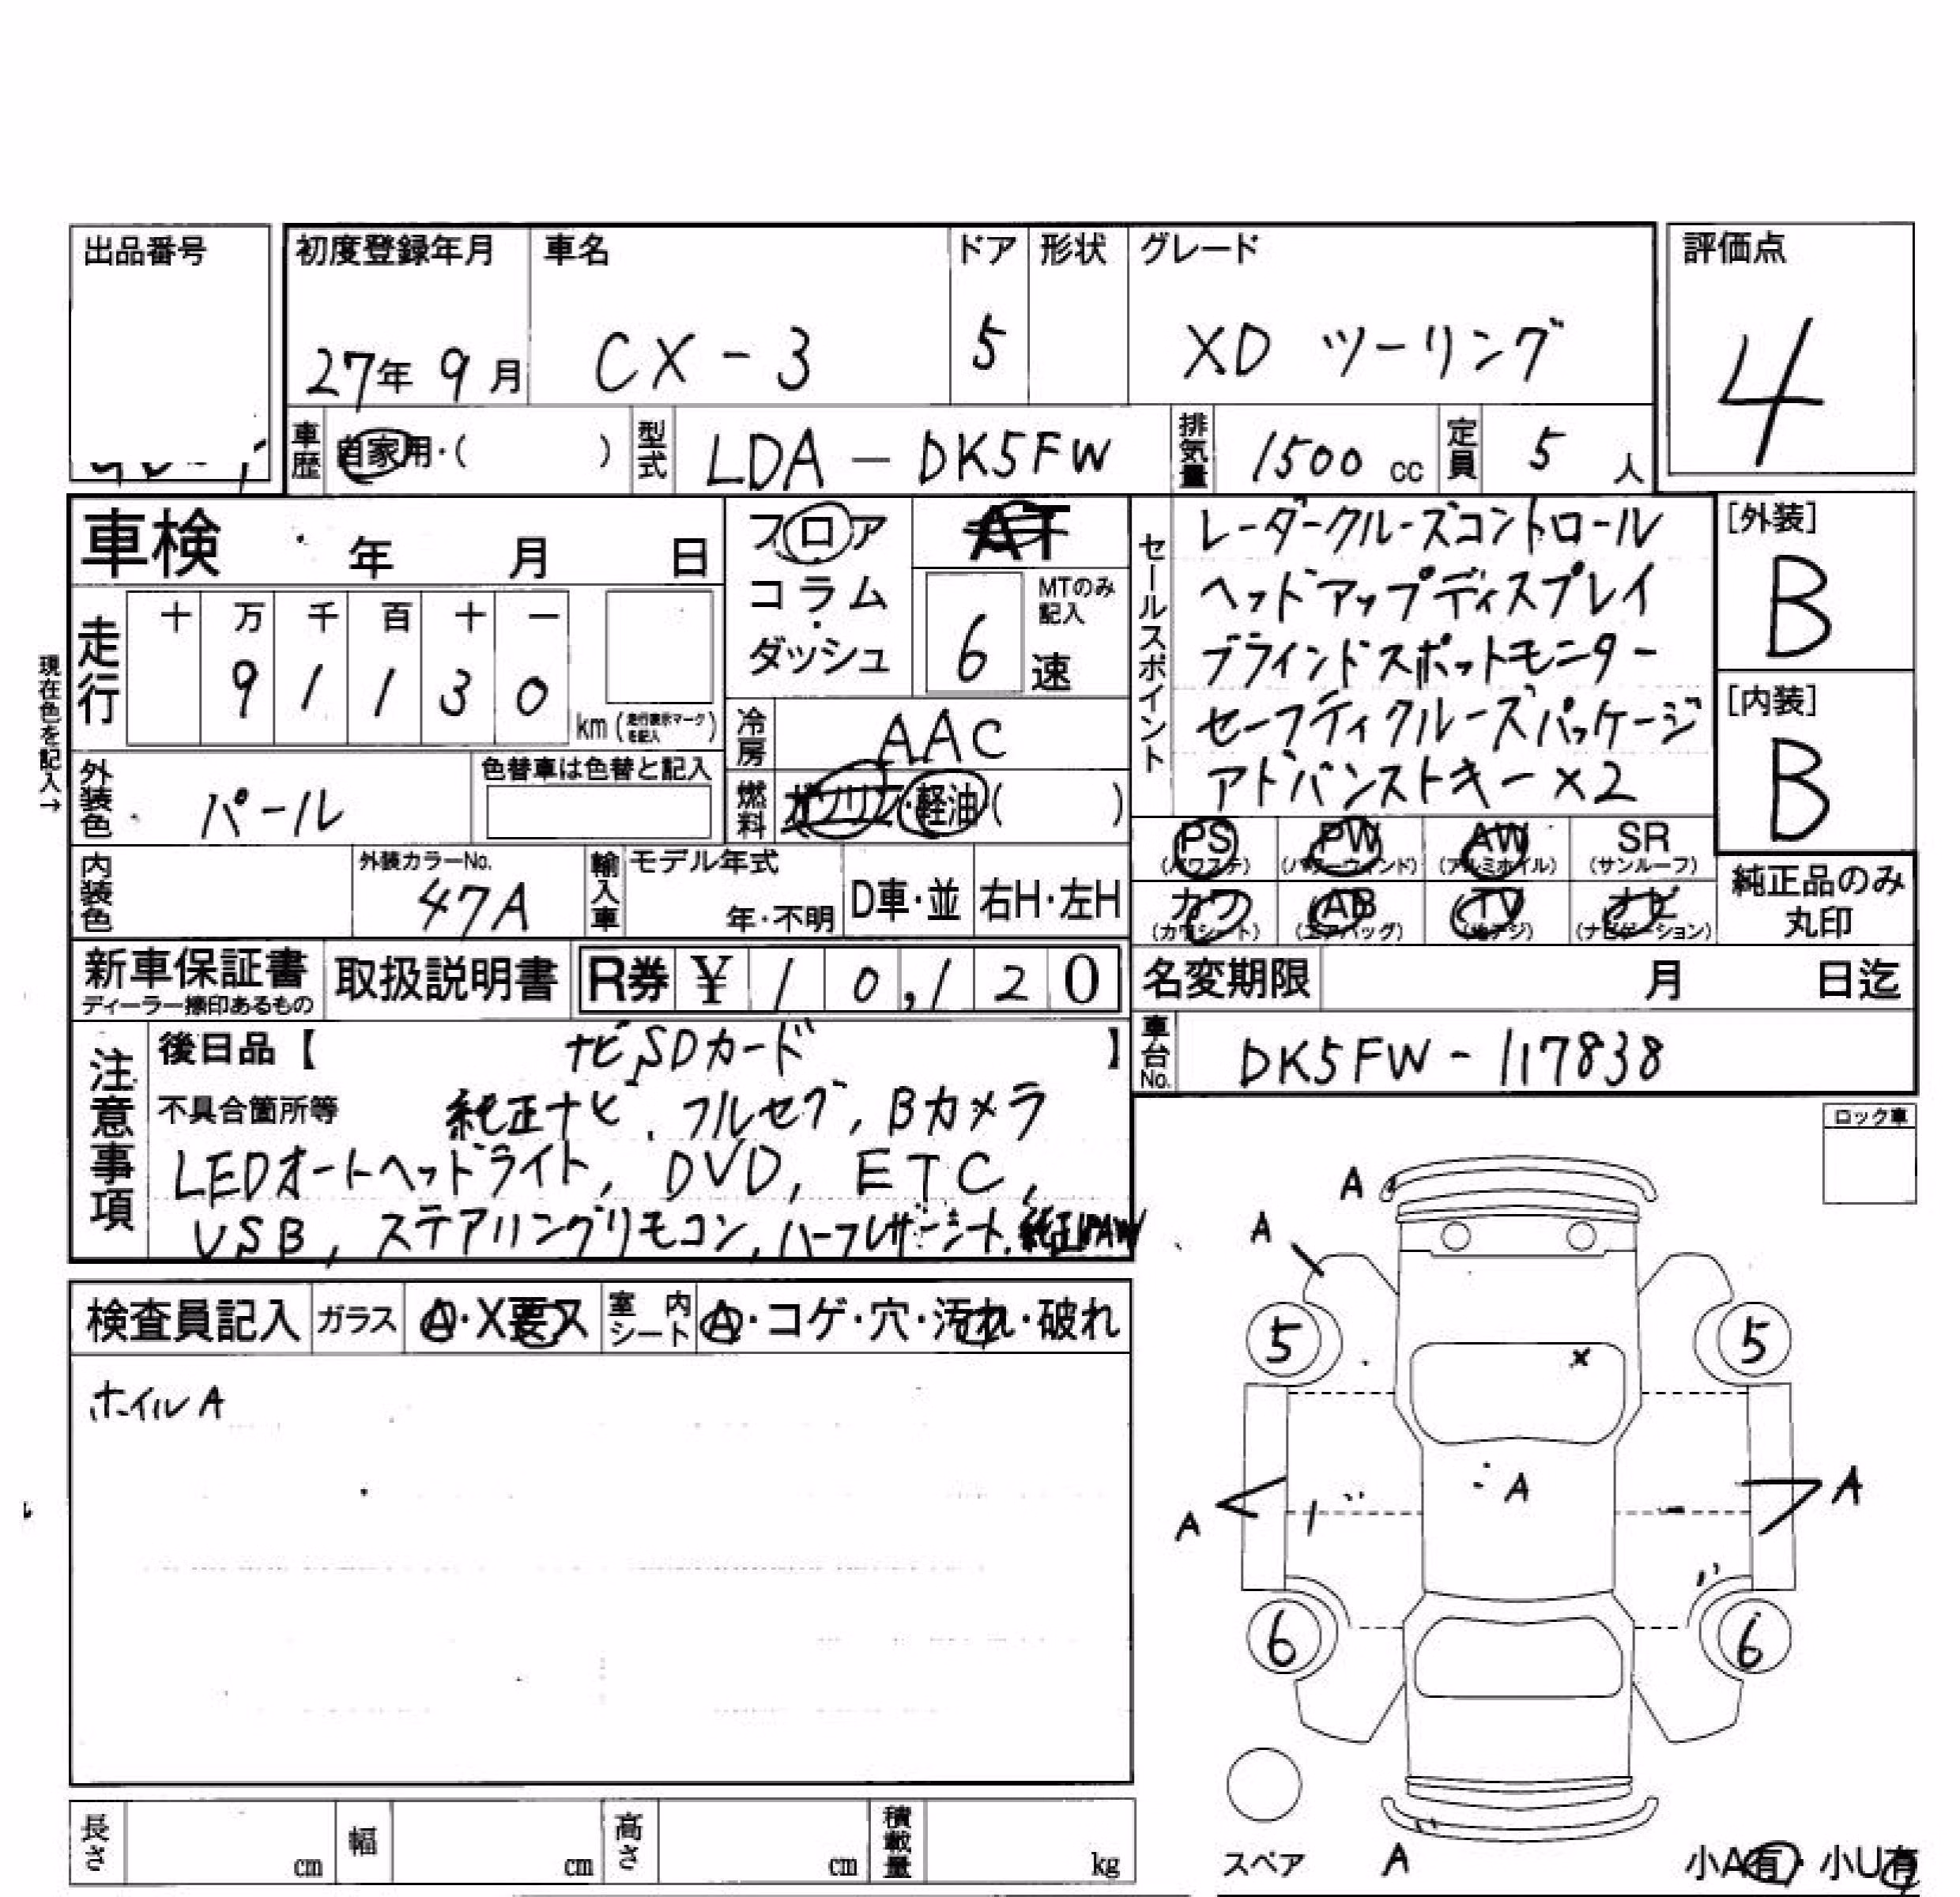 出品番号
初度登録年月 車名 ドア 形状 グレード 評価点
27年 9月 CX-3 5 XD ツーリング 4
車歴 自家用・( ) 型式 LDA-DK5FW 排気量 1500 cc 定員 5 人
車検 年 月 日
フロア AT
コラム・
ダッシュ
MTのみ記入
6 速
セールスポイント
レーダークルーズコントロール
ヘッドアップディスプレイ
ブラインドスポットモニター
セーフティクルーズパッケージ
アドバンストキー×2
[外装]
B
[内装]
B
現在色を記入→
走行 十 万 千 百 十 一
9 1 1 3 0 km (走行表示マークを記入)
冷房 AAC
外装色 パール 色替車は色替と記入
燃料 ガソリン・軽油( )
PS (パワステ) PW (パワーウィンド) AW (アルミホイル) SR (サンルーフ)
カワ (カワシート) AB (エアバッグ) TV (地デジ) ナビ (ナビゲーション)
純正品のみ
丸印
内装色 外装カラーNo. 47A 輸入車 モデル年式 年・不明 D車・並 右H・左H
新車保証書 ディーラー捺印あるもの 取扱説明書 R券 ¥ 10,120
名変期限 月 日迄
車台No. DK5FW-117838
注意事項
後日品【 ナビSDカード 】
不具合箇所等 純正ナビ, フルセグ, Bカメラ
LEDオートヘッドライト, DVD, ETC,
USB, ステアリングリモコン, ハーフレザーシート, 純正18AW
ロック車
検査員記入 ガラス A・X要ス 室内シート A・コゲ・穴・汚れ・破れ
ホイルA
A
A
5 5
×
A A A
6 6
スペア A 小A有・小U有
長さ cm 幅 cm 高さ cm 積載量 kg